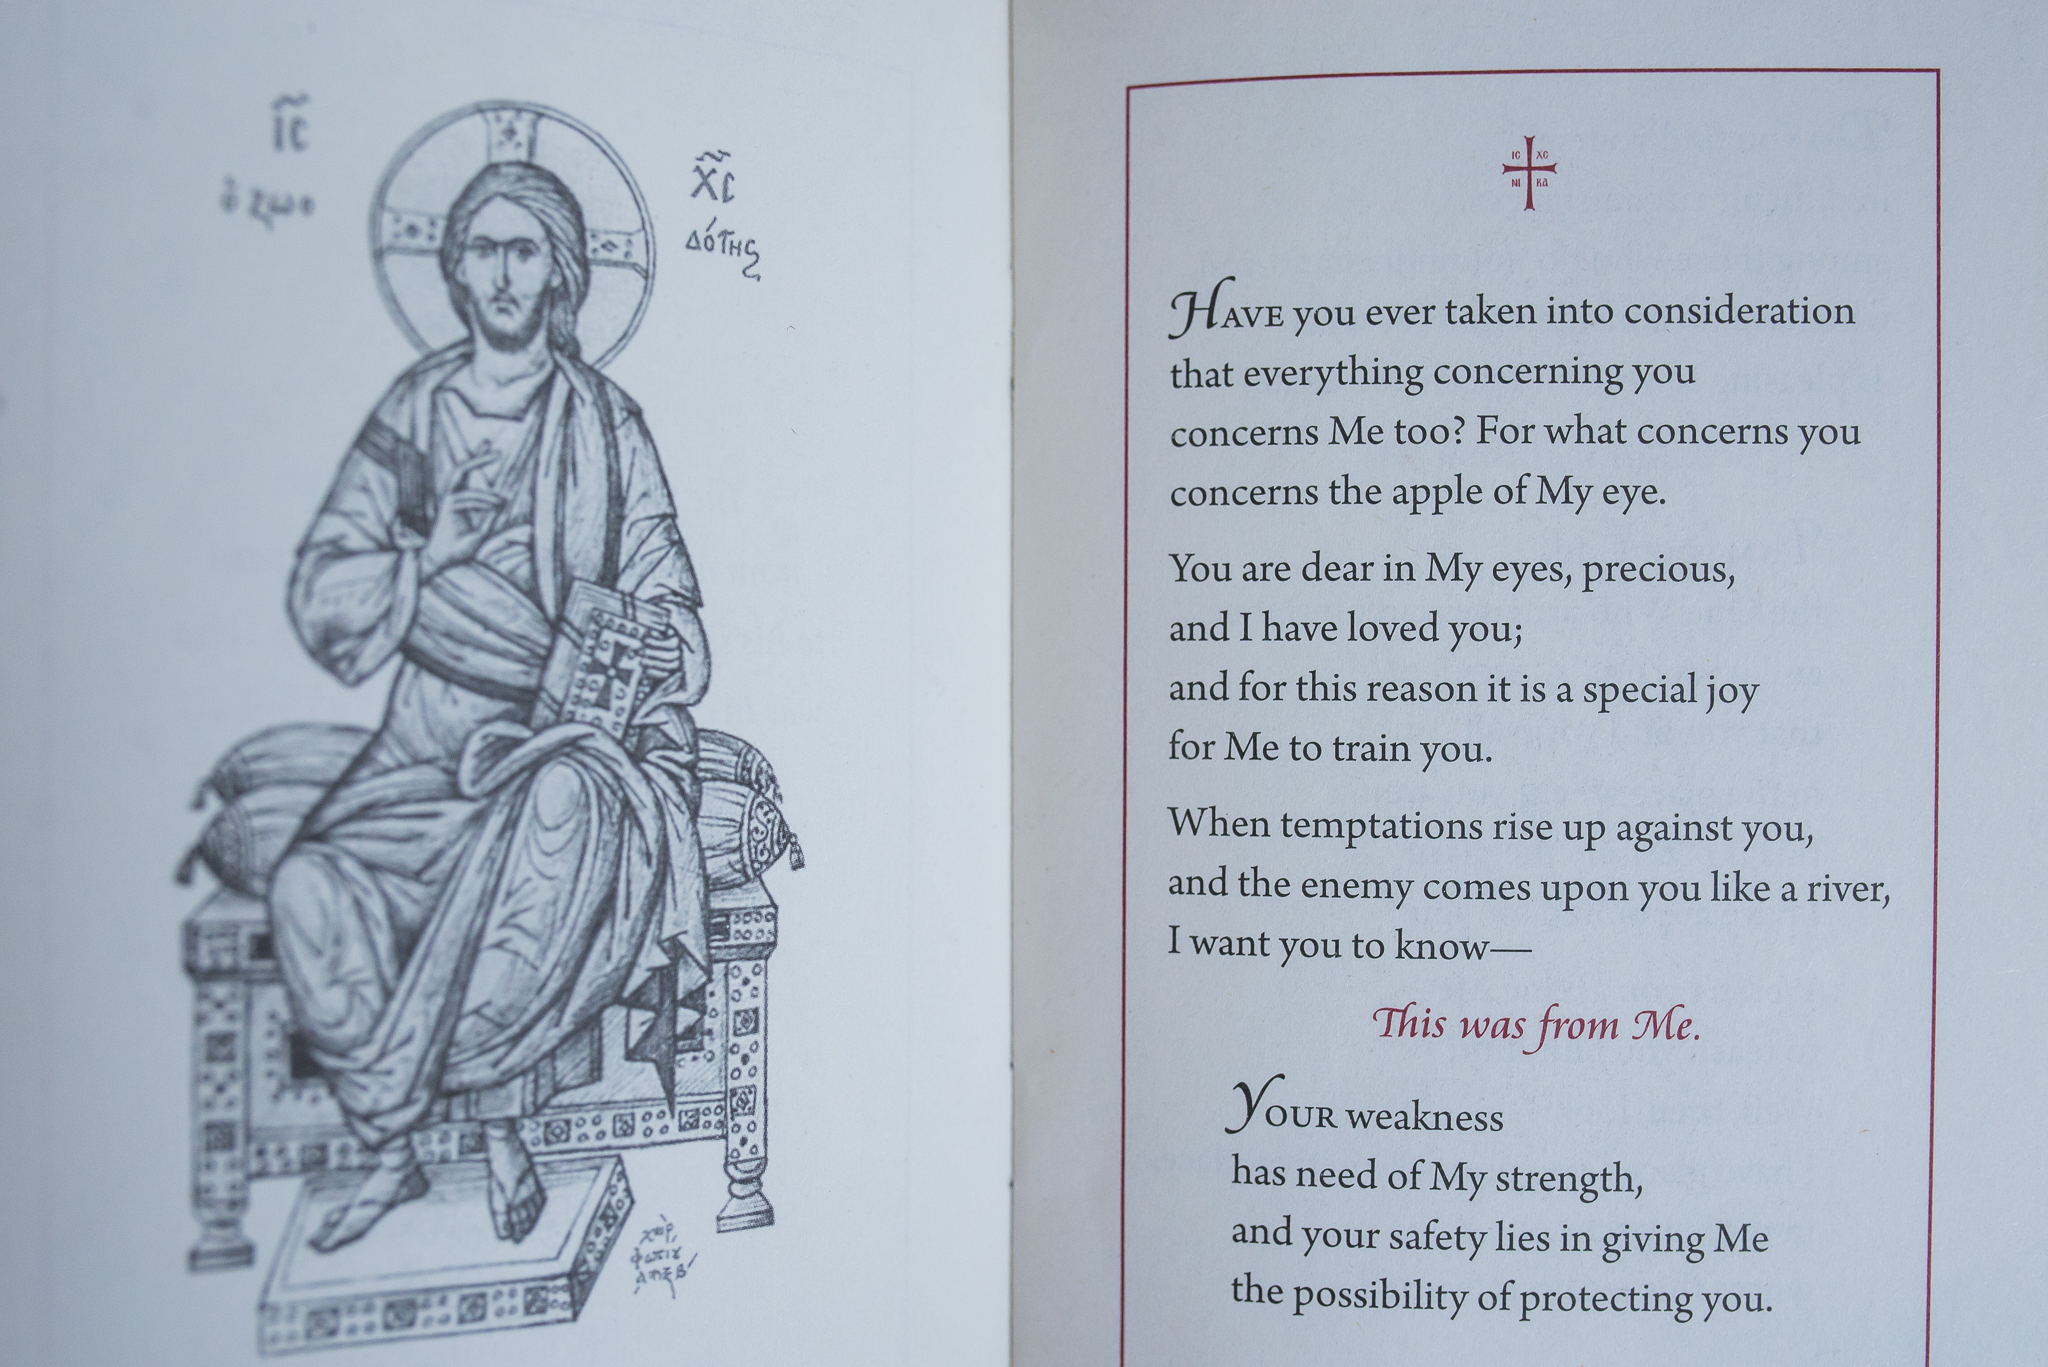 ΙС
ὁ ζωο
ΧС
δότης
IC XC
NI KA
HAVE you ever taken into consideration
that everything concerning you
concerns Me too? For what concerns you
concerns the apple of My eye.
You are dear in My eyes, precious,
and I have loved you;
and for this reason it is a special joy
for Me to train you.
When temptations rise up against you,
and the enemy comes upon you like a river,
I want you to know—
This was from Me.
YOUR weakness
has need of My strength,
and your safety lies in giving Me
the possibility of protecting you.